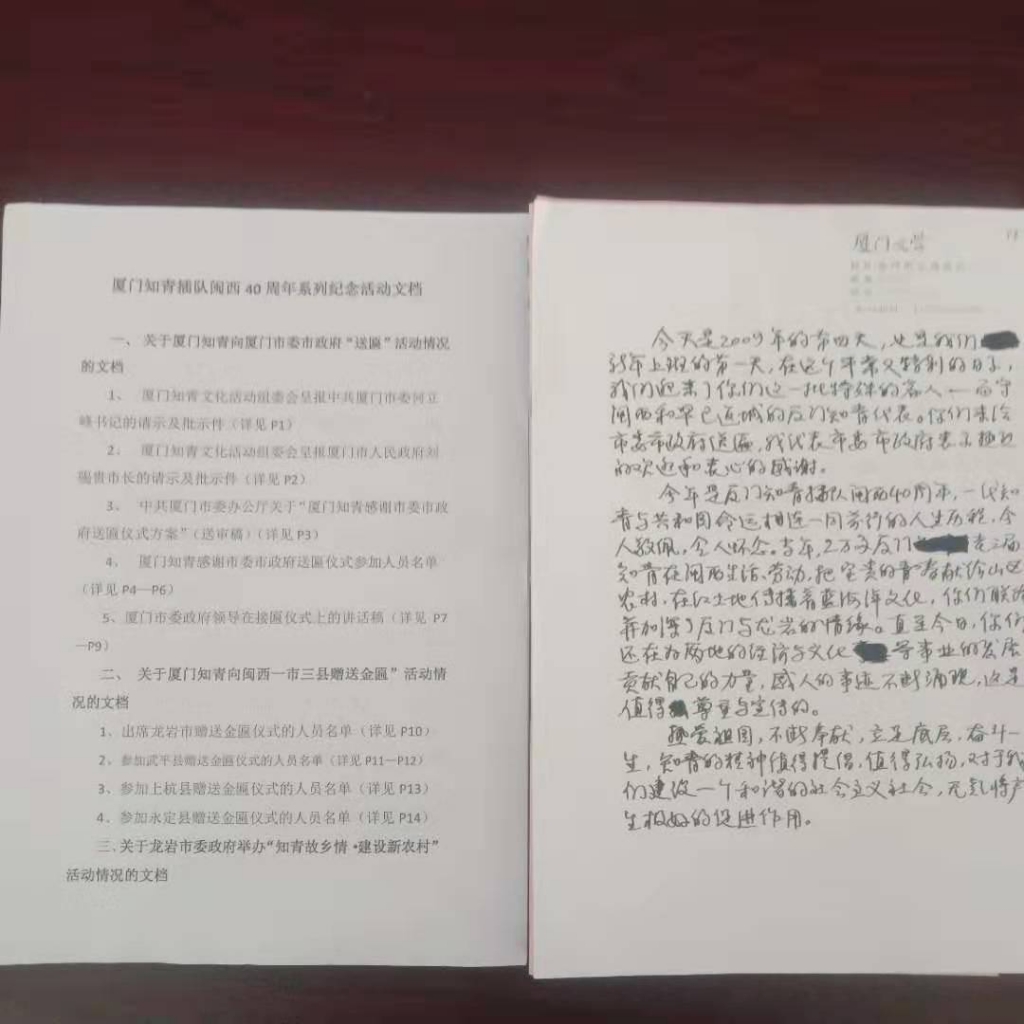 厦门知青插队闽西 40 周年系列纪念活动文档
一、 关于厦门知青向厦门市委市政府“送匾”活动情况
的文档
1、 厦门知青文化活动组委会呈报中共厦门市委何立
峰书记的请示及批示件（详见 P1）
2、 厦门知青文化活动组委会呈报厦门市人民政府刘
赐贵市长的请示及批示件（详见 P2）
3、 中共厦门市委办公厅关于“厦门知青感谢市委市政
府送匾仪式方案”（送审稿）（详见 P3）
4、 厦门知青感谢市委市政府送匾仪式参加人员名单
（详见 P4—P6）
5、厦门市委政府领导在接匾仪式上的讲话稿（详见 P7
—P9）
二、 关于厦门知青向闽西一市三县赠送金匾”活动情
况的文档
1、出席龙岩市赠送金匾仪式的人员名单（详见 P10）
2、参加武平县赠送金匾仪式的人员名单（详见 P11—P12）
3、参加上杭县赠送金匾仪式的人员名单（详见 P13）
4、参加永定县赠送金匾仪式的人员名单（详见 P14）
三、关于龙岩市委政府举办“知青故乡情·建设新农村”
活动情况的文档
厦门文学
今天是2009年的第四天，也是我们
新年上班的第一天，在这个平常又特别的日子，
我们迎来了你们这一批特殊的客人——留守
闽西和早已返城的厦门知青代表。你们来给
市委市政府送匾，我代表市委市政府表示热烈
的欢迎和衷心的感谢。
今年是厦门知青插队闽西40周年，一代知
青与共和国命运相连一同前行的人生历程，令
人敬佩，令人怀念。当年，2万多厦门老三届
知青在闽西生活、劳动，把宝贵的青春献给山区
农村，在红土地传播着蓝海洋文化，你们联络
并加深了厦门与龙岩的情缘。直至今日，你们
还在为两地的经济与文化等事业的发展
贡献自己的力量，感人的事迹不断涌现，这是
值得尊重与宣传的。
热爱祖国，不断奉献，立足底层，奋斗一
生，知青的精神值得提倡，值得弘扬，对于我
们建设一个和谐的社会主义社会，无疑将产
生极好的促进作用。